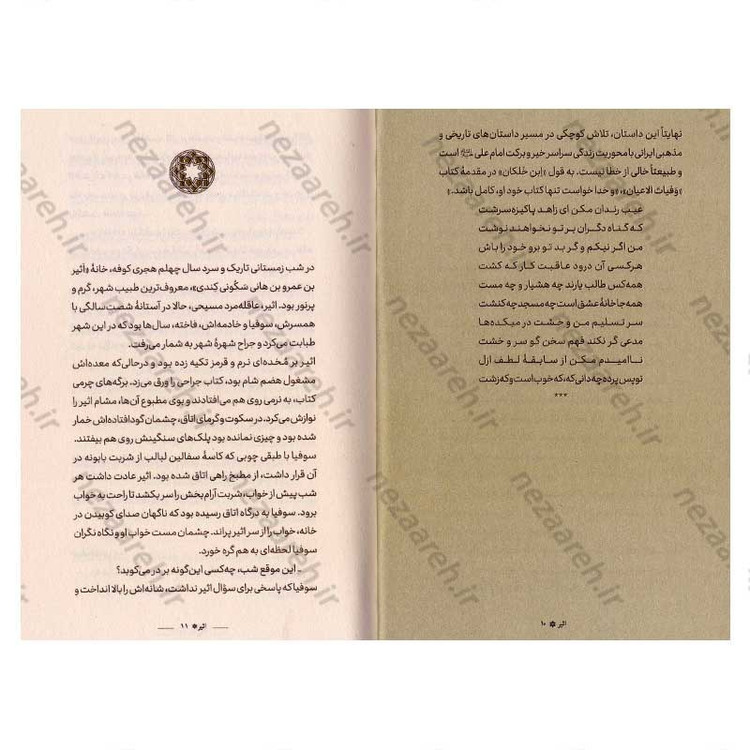 نهایتاً این داستان، تلاش کوچکی در مسیر داستان‌های تاریخی و
مذهبی ایرانی با محوریت زندگی سراسر خیر و برکت امام علی علیه‌السلام است
و طبیعتاً خالی از خطا نیست. به قول «اِبن خَلکان» در مقدمهٔ کتاب
«وَفیات الاعیان»، «و خدا خواست تنها کتاب خود او، کامل باشد.»
عیب رندان مکن ای زاهد پاکیزه سرشت
که گناه دگران بر تو نخواهند نوشت
من اگر نیکم و گر بد تو برو خود را باش
هرکسی آن درود عاقبت کار که کشت
همه‌کس طالب یارند چه هشیار و چه مست
همه جا خانهٔ عشق است چه مسجد چه کنشت
سر تسلیم من و خشت در میکده‌ها
مدعی گر نکند فهم سخن گو سر و خشت
ناامیدم مکن از سابقهٔ لطف ازل
تو پس پرده چه دانی که، که خوب است و که زشت
***
اثیر ۱۰
در شب زمستانی تاریک و سرد سال چهلم هجری کوفه، خانهٔ «اَثیر
بن عمرو بن هانی سَکُونی کِندی»، معروف‌ترین طبیب شهر، گرم و
پرنور بود. اثیر، عاقله‌مرد مسیحی، حالا در آستانهٔ شصت سالگی با
همسرش، سوفیا و خادمه‌اش، فاخته، سال‌ها بود که در این شهر
طبابت می‌کرد و جراح شهرهٔ شهر به شمار می‌رفت.
اثیر بر مُخده‌ای نرم و قرمز تکیه زده بود و درحالی‌که معده‌اش
مشغول هضم شام بود، کتاب جراحی را ورق می‌زد. برگه‌های چرمی
کتاب، به نرمی روی هم می‌افتادند و بوی مطبوع آن‌ها، مشام اثیر را
نوازش می‌کرد. در سکوت و گرمای اتاق، چشمان گودافتاده‌اش خمار
شده بود و چیزی نمانده بود پلک‌های سنگینش روی هم بیفتند.
سوفیا با طبقی چوبی که کاسهٔ سفالین لبالب از شربت بابونه در
آن قرار داشت، از مطبخ راهی اتاق شده بود. اثیر عادت داشت هر
شب پیش از خواب، شربت آرام‌بخش را سر بکشد تا راحت به خواب
برود. سوفیا به درگاه اتاق رسیده بود که ناگهان صدای کوبیدن در
خانه، خواب را از سر اثیر پراند. چشمان مست خواب او و نگاه نگران
سوفیا لحظه‌ای به هم گره خورد.
ـ این موقع شب، چه‌کسی این‌گونه بر در می‌کوبد؟
سوفیا که پاسخی برای سؤال اثیر نداشت، شانه‌اش را بالا انداخت و
اثیر ۱۱
nezaareh.ir